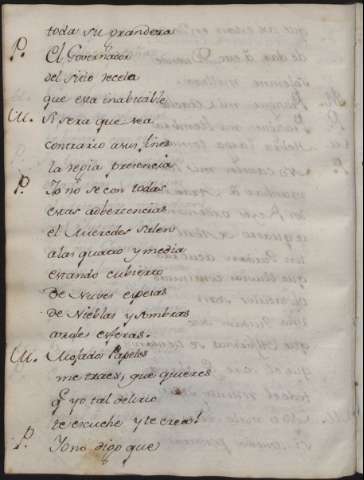 toda su grandeza
P. El Governador
del Sitio recela
que esta inabitable
M. Si sera que sea
contrario a sus fines
la regia presencia
P. Io no se con todas
estas adbertencias
el Miercoles salen
a las quatro y media
estando cubierto
de Nubes espesas
de Nieblas y sombras
azules esferas.
M. Mojados Papeles
me traes, que quieres
q yo tal delirio
te escuche y te crea!
P. Io no digo que